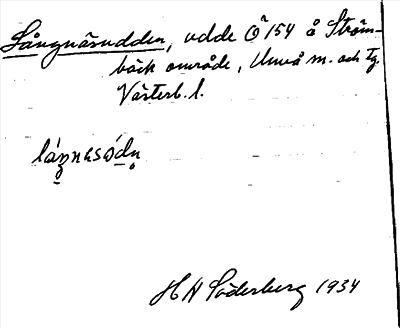 Långnäsudden, udde Ö 154 å Ström-
bäck område, Umeå m. och tg.
Västerb. l.
H H Söderberg 1934